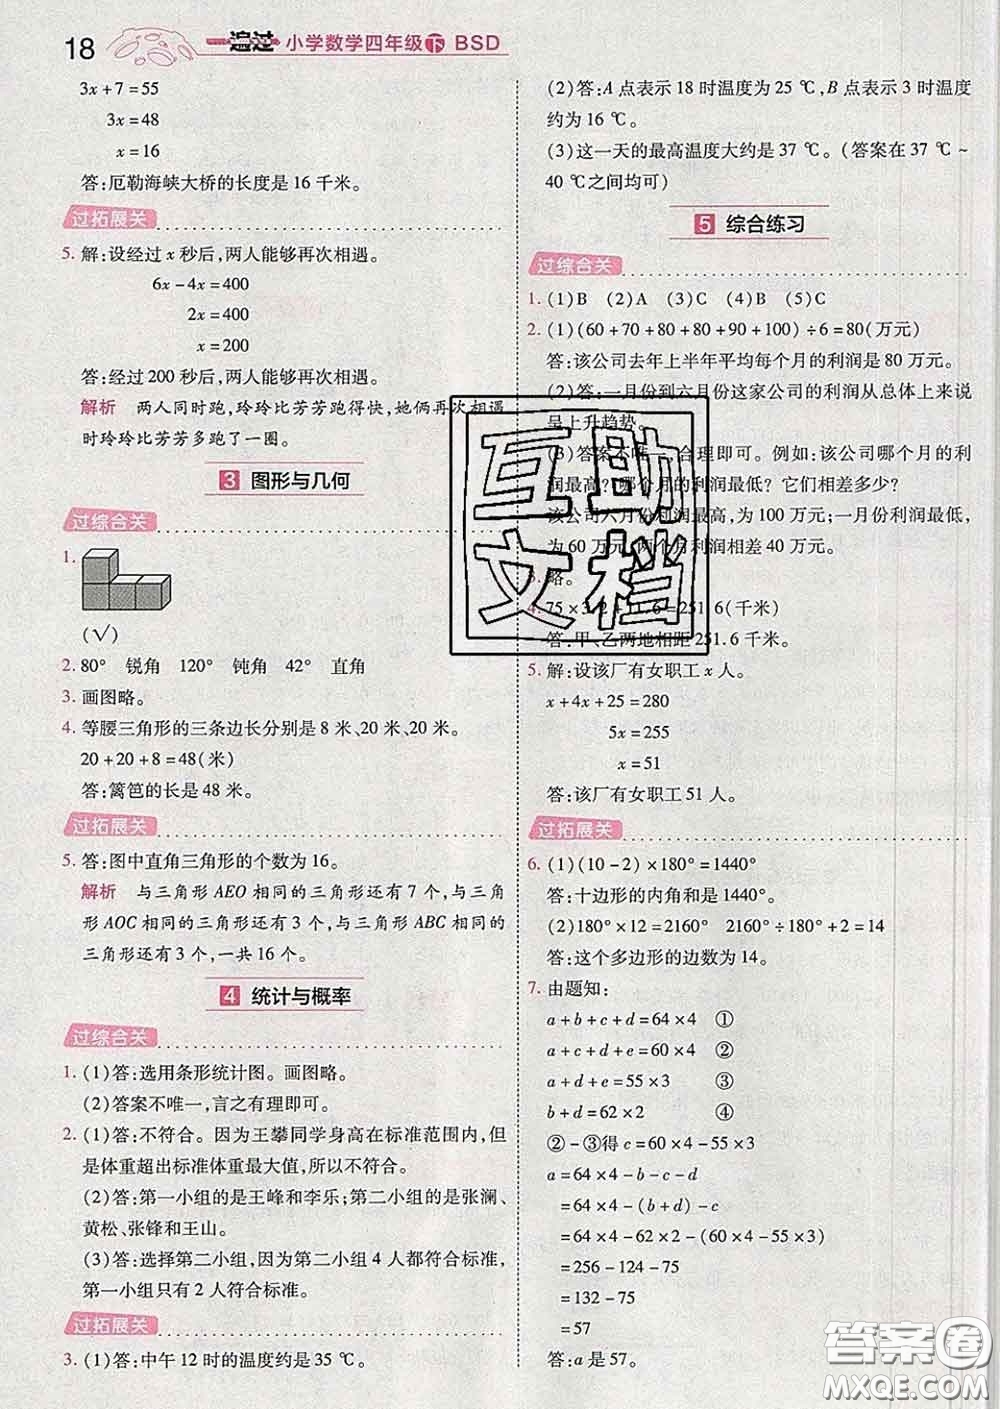 18 一遍过 小学数学四年级下 BSD
3x+7=55
3x=48
x=16
答:厄勒海峡大桥的长度是16千米。
过拓展关
5. 解:设经过x秒后,两人能够再次相遇。
6x-4x=400
2x=400
x=200
答:经过200秒后,两人能够再次相遇。
解析 两人同时跑,玲玲比芳芳跑得快,她俩再次相遇
时玲玲比芳芳多跑了一圈。
3 图形与几何
过综合关
1.
(√)
2. 80° 锐角 120° 钝角 42° 直角
3. 画图略。
4. 等腰三角形的三条边长分别是8米、20米、20米。
20+20+8=48(米)
答:篱笆的长是48米。
过拓展关
5. 答:图中直角三角形的个数为16。
解析 与三角形AEO相同的三角形还有7个,与三角
形AOC相同的三角形还有3个,与三角形ABC相同的
三角形还有3个,一共16个。
4 统计与概率
过综合关
1. (1)答:选用条形统计图。画图略。
(2)答案不唯一,言之有理即可。
2. (1)答:不符合。因为王攀同学身高在标准范围内,但
是体重超出标准体重最大值,所以不符合。
(2)答:第一小组的是王峰和李乐;第二小组的是张澜、
黄松、张锋和王山。
(3)答:选择第二小组,因为第二小组4人都符合标准,
第一小组只有2人符合标准。
过拓展关
3. (1)答:中午12时的温度约是35 ℃。
(2)答:A点表示18时温度为25 ℃,B点表示3时温度
约为16 ℃。
(3)这一天的最高温度大约是37 ℃。(答案在37 ℃~
40 ℃之间均可)
5 综合练习
过综合关
1. (1)B (2)A (3)C (4)B (5)C
2. (1)(60+70+80+80+90+100)÷6=80(万元)
答:该公司去年上半年平均每个月的利润是80万元。
(2)答:一月份到六月份这家公司的利润从总体上来说
呈上升趋势。
(3)答案不唯一,合理即可。例如:该公司哪个月的利
润最高?哪个月的利润最低?它们相差多少?
该公司六月份利润最高,为100万元;一月份利润最低,
为60万元,两个月利润相差40万元。
3. 略。
4. 75×3.2+11.6=251.6(千米)
答:甲、乙两地相距251.6千米。
5. 解:设该厂有女职工x人。
x+4x+25=280
5x=255
x=51
答:该厂有女职工51人。
过拓展关
6. (1)(10-2)×180°=1440°
答:十边形的内角和是1440°。
(2)180°×12=2160° 2160°÷180°+2=14
答:这个多边形的边数为14。
7. 由题知:
a+b+c+d=64×4 ①
a+c+d+e=60×4 ②
a+d+e=55×3 ③
b+d=62×2 ④
②-③得c=60×4-55×3
a=64×4-b-d-c
=64×4-(b+d)-c
=64×4-62×2-(60×4-55×3)
=256-124-75
=132-75
=57
答:a是57。
互助
文档
答案圈
MXQE.COM